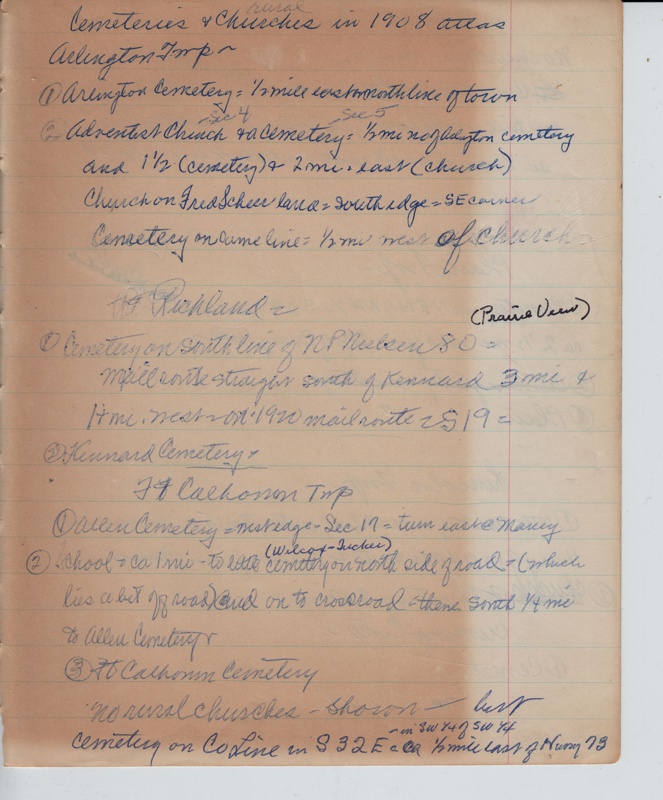 rural
Cemeteries & Churches in 1908 atlas
Arlington Twp ~
① Arlington Cemetery = 1/2 mile east on north line of town
Sec 4 Sec 5
② Adventist Church & a Cemetery = 1/2 mi no of Arlington cemetery
and 1 1/2 (cemetery) & 2 mi. east (church)
Church on Fred Scheer land = south edge = SE corner
Cemetery on same line = 1/2 mi west of church =
Richland =
(Prairie View)
① Cemetery on south line of N P Nielsen 80 =
Mail route straight south of Kennard 3 mi &
1/4 mi. west = on 1920 mail route = S 19 =
② Kennard Cemetery
Ft Calhoun Twp
① Allen Cemetery = west edge - Sec 17 = turn east @ Masney
② School = ca 1 mi - to cemetery on north side of road = (which
(Wilcox-Tucker)
lies a bit off road) and on to crossroad = thence south 1/4 mi
to Allen Cemetery
③ Ft Calhoun Cemetery
no rural churches - shown - but
- in SW 1/4 of SW 1/4
Cemetery on Co Line in S 32 E = ca 1/2 mile east of Hiway 73